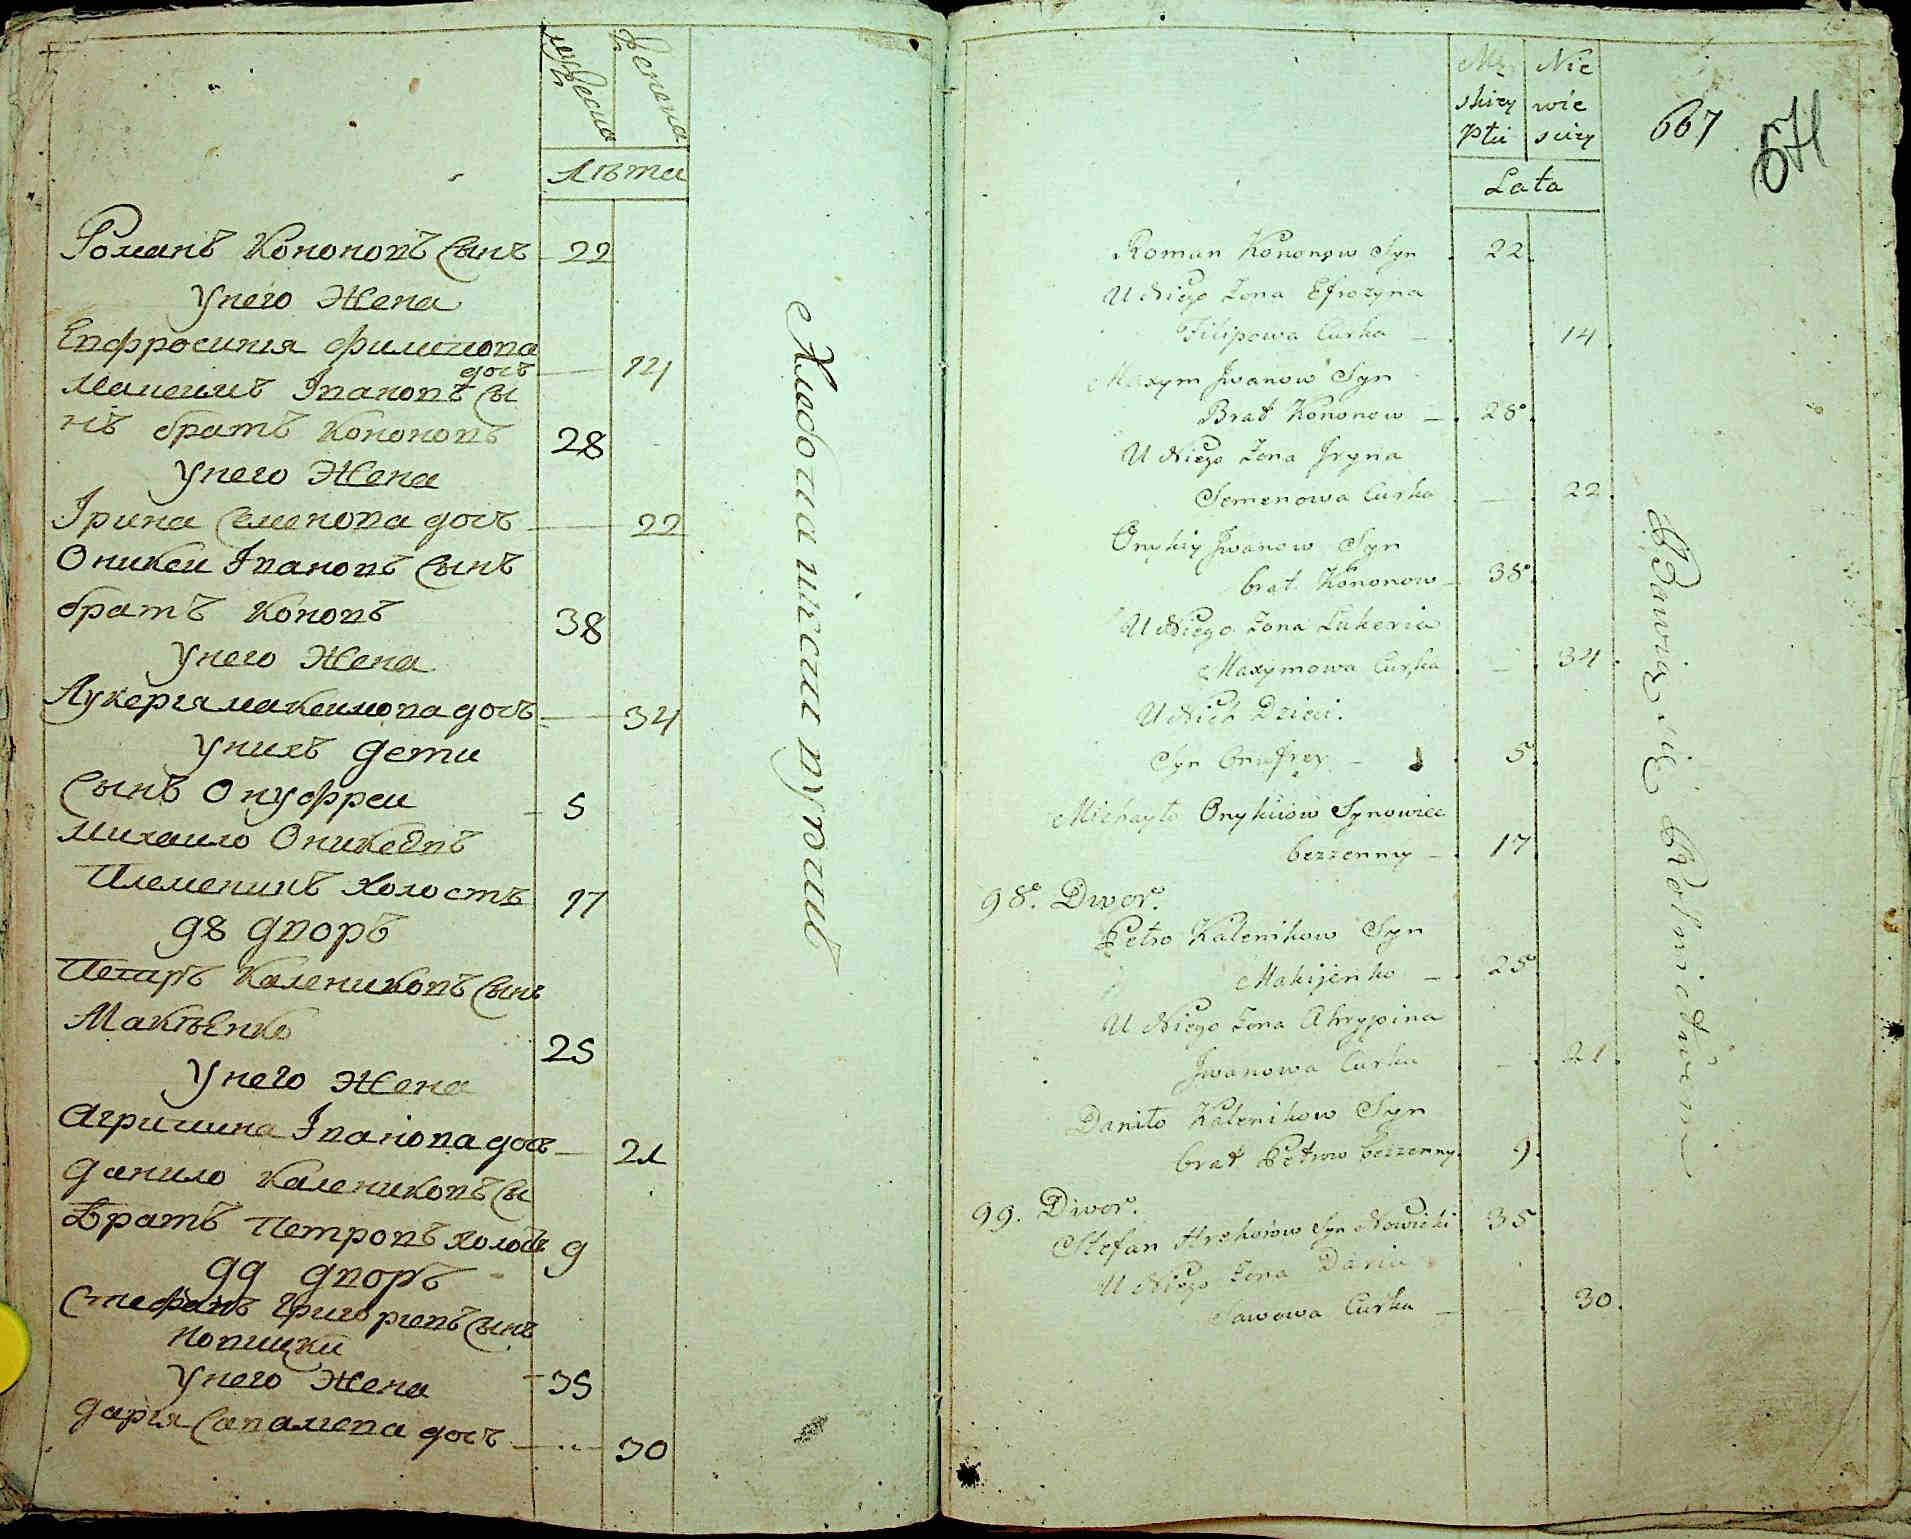 мужеска
женска
лѣта
Романъ Кононовъ сынъ 22
у него жена
Евфросиния Филипова
дочь — 14
Максимъ Iвановъ сы
нъ братъ Кононовъ 28
у него жена
Iрина Семенова дочь — 22
Оникеи Iвановъ сынъ
братъ Кононовъ 38
у него жена
Лукерiя Максимова дочь — 34
у нихъ дети
сынъ Онуфреи — 5
Михаило Оникеевъ
племеникъ холостъ 17
98 дворъ
Петръ Калениковъ сынъ
Макѣенко 25
у него жена
Агрипина Iванова дочь — 21
Данило Калениковъ сы
братъ Петровъ холостъ 9
99 дворъ
Стефанъ Григориевъ сынъ
Новицки
у него жена — 35
Дарiя Савалиева дочь — 30
Хлебопашествуютъ
Mę Nie
skiey wie
Płci sciey
Lata
667
671
Roman Kononow Syn 22.
U Niego Zona Efrozyna
Filipowa Curka — 14.
Maxym Jwanow Syn
Brat Kononow — 28.
U Niego Zona Jryna
Semenowa Curka — 22.
Onykiy Jwanow Syn
brat Kononow — 38.
U Niego Zona Lukeria
Maxymowa Curka — 34.
U Nich Dzieci.
Syn Onufrey — 5.
Michayło Onykiiow Synowiec
bezzenny — 17.
98. Dwor.
Petro Kalenikow Syn
Makijenko — 25.
U Niego Zona Ahrypina
Jwanowa Curka — 21.
Daniło Kalenikow Syn
brat Petrow bezzenny. 9.
99. Dwor.
Stefan Hrehorow Syn Nowicki. 35.
U Niego Zona Daria
Sawowa Curka — 30.
Bawią się Rolnictwem